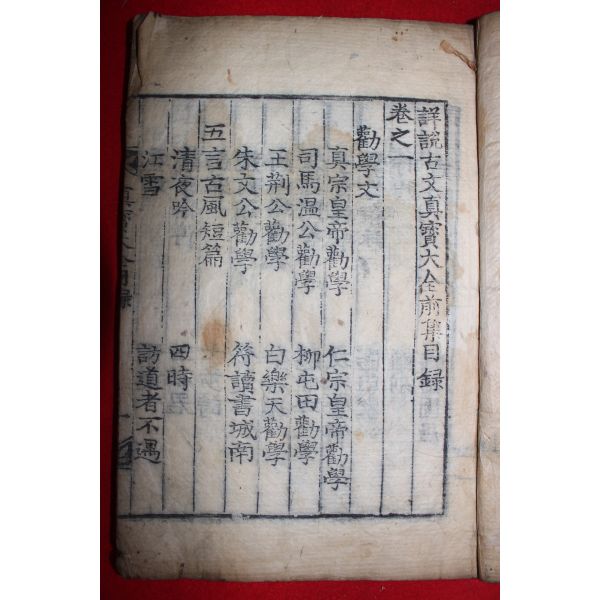 詳說古文真寶大全前集目錄
卷之一
勸學文
真宗皇帝勸學 仁宗皇帝勸學
司馬溫公勸學 柳屯田勸學
王荊公勸學 白樂天勸學
朱文公勸學 符讀書城南
五言古風短篇
清夜吟 四時
江雪 訪道者不遇
真寶大全目錄 一